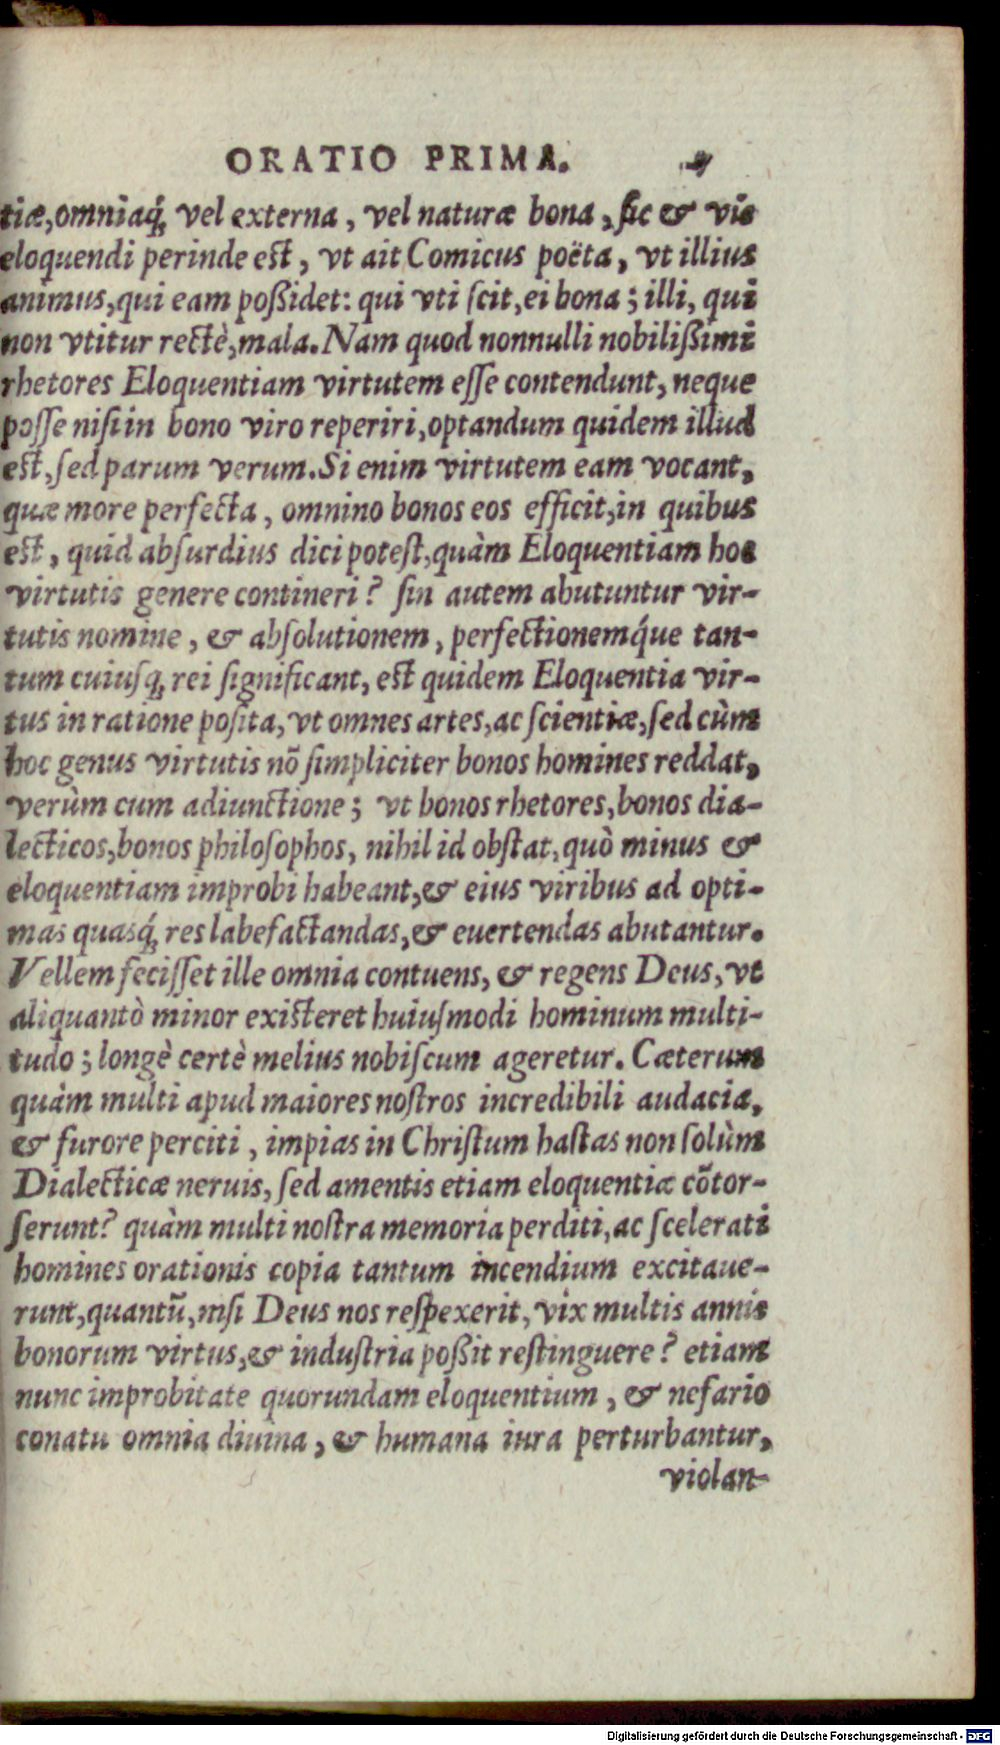 ORATIO PRIMA.
tiæ, omniaq́; vel externa, vel naturæ bona, sic & vis
eloquendi perinde est, vt ait Comicus poëta, vt illius
animus, qui eam poßidet: qui vti scit, ei bona; illi, qui
non vtitur rectè, mala. Nam quod nonnulli nobilißimi
rhetores Eloquentiam virtutem esse contendunt, neque
posse nisi in bono viro reperiri, optandum quidem illud
est, sed parum verum. Si enim virtutem eam vocant,
quæ more perfecta, omnino bonos eos efficit, in quibus
est, quid absurdius dici potest, quàm Eloquentiam hoc
virtutis genere contineri? sin autem abutuntur vir-
tutis nomine, & absolutionem, perfectionemq́ue tan-
tum cuiusq; rei significant, est quidem Eloquentia vir-
tus in ratione posita, vt omnes artes, ac scientiæ, sed cùm
hoc genus virtutis nõ simpliciter bonos homines reddat,
verùm cum adiunctione; vt bonos rhetores, bonos dia-
lecticos, bonos philosophos, nihil id obstat, quò minus &
eloquentiam improbi habeant, & eius viribus ad opti-
mas quasq́; res labefactandas, & euertendas abutantur.
Vellem fecisset ille omnia contuens, & regens Deus, vt
aliquantò minor existeret huiusmodi hominum multi-
tudo; longè certè melius nobiscum ageretur. Cæterum
quàm multi apud maiores nostros incredibili audacia,
& furore perciti, impias in Christum hastas non solùm
Dialecticæ neruis, sed amentis etiam eloquentiæ cõtor-
serunt? quàm multi nostra memoria perditi, ac scelerati
homines orationis copia tantum incendium excitaue-
runt, quantũ, nisi Deus nos respexerit, vix multis annis
bonorum virtus, & industria poßit restinguere? etiam
nunc improbitate quorundam eloquentium, & nefario
conatu omnia diuina, & humana iura perturbantur,
violan-
Digitalisierung gefördert durch die Deutsche Forschungsgemeinschaft - DFG